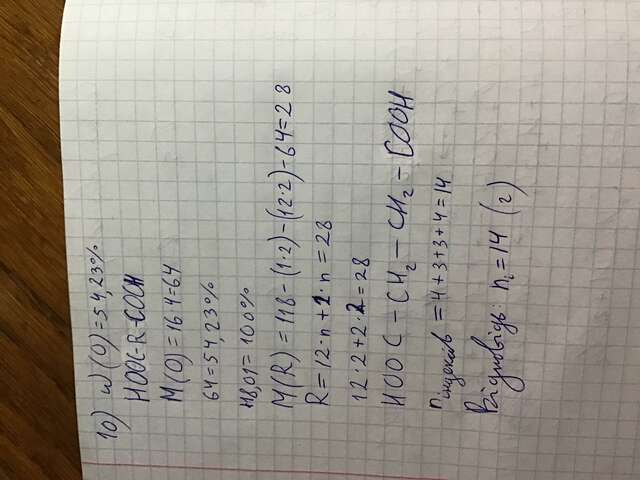 10) ω(O)=54,23%
HOOC-R-COOH
M(O)=16·4=64
64=54,23%
118,01=100%
M(R)=118-(1·2)-(12·2)-64=28
R=12·n+2·n=28
12·2+2·2=28
HOOC-CH₂-CH₂-COOH
n індексів =4+3+3+4=14
Відповідь: n =14 (г)